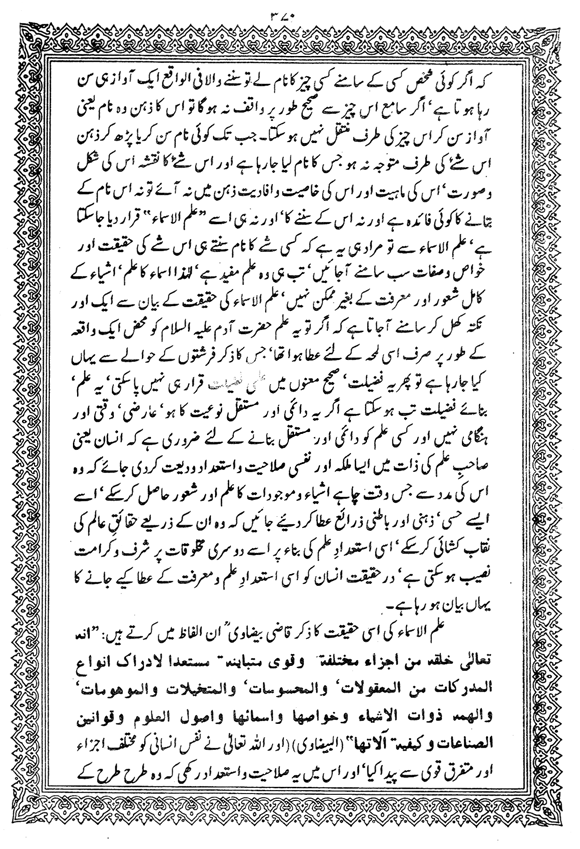 ۳۷۰
کہ اگر کوئی شخص کسی کے سامنے کسی چیز کا نام لے تو سننے والا فی الواقع ایک آواز ہی سن
رہا ہوتا ہے، اگر سامع اس چیز سے صحیح طور پر واقف نہ ہو گا تو اس کا ذہن وہ نام یعنی
آواز سن کر اس چیز کی طرف منتقل نہیں ہو سکتا۔ جب تک کوئی نام سن کر یا پڑھ کر ذہن
اس شئے کی طرف متوجہ نہ ہو جس کا نام لیا جا رہا ہے اور اس شئے کا نقشہ اس کی شکل
و صورت، اس کی ماہیت اور اس کی خاصیت و افادیت ذہن میں نہ آئے تو نہ اس نام کے
بتانے کا کوئی فائدہ ہے اور نہ اس کے سننے کا، اور نہ ہی اسے "علم الاسماء" قرار دیا جا سکتا
ہے، علم الاسماء سے تو مراد ہی یہ ہے کہ کسی شے کا نام سنتے ہی اس شے کی حقیقت اور
خواص و صفات سب سامنے آ جائیں، تب ہی وہ علم مفید ہے، لہٰذا اسماء کا علم، اشیاء کے
کامل شعور اور معرفت کے بغیر ممکن نہیں، علم الاسماء کی حقیقت کے بیان سے ایک اور
نکتہ کھل کر سامنے آ جاتا ہے کہ اگر تو یہ علم حضرت آدم علیہ السلام کو محض ایک واقعہ
کے طور پر صرف اسی لمحہ کے لئے عطا ہوا تھا، جس کا ذکر فرشتوں کے حوالے سے یہاں
کیا جا رہا ہے تو پھر یہ فضیلت، صحیح معنوں میں علمی فضیلت قرار ہی نہیں پا سکتی، یہ علم،
بنائے فضیلت تب ہو سکتا ہے اگر یہ دائمی اور مستقل نوعیت کا ہو، عارضی، وقتی اور
ہنگامی نہیں اور کسی علم کو دائمی اور مستقل بنانے کے لئے ضروری ہے کہ انسان یعنی
صاحبِ علم کی ذات میں ایسا ملکہ اور نفسی صلاحیت و استعداد ودیعت کر دی جائے کہ وہ
اس کی مدد سے جس وقت چاہے اشیاء و موجودات کا علم اور شعور حاصل کر سکے، اسے
ایسے حسی، ذہنی اور باطنی ذرائع عطا کر دیئے جائیں کہ وہ ان کے ذریعے حقائقِ عالم کی
نقاب کشائی کر سکے، اسی استعدادِ علم کی بناء پر اسے دوسری مخلوقات پر شرف و کرامت
نصیب ہو سکتی ہے، در حقیقت انسان کو اسی استعدادِ علم و معرفت کے عطا کیے جانے کا
یہاں بیان ہو رہا ہے۔
علم الاسماء کی اسی حقیقت کا ذکر قاضی بیضاویؒ ان الفاظ میں کرتے ہیں: "انہ
تعالٰی خلقہ من اجزاء مختلفة وقوی متباینة مستعدا لادراک انواع
المدرکات من المعقولات، والمحسوسات، والمتخیلات والموھومات،
والھمہ ذوات الاشیاء وخواصھا واسمائھا واصول العلوم وقوانین
الصناعات وکیفیة آلاتھا" (البیضاوی) (اور اللہ تعالیٰ نے نفس انسانی کو مختلف اجزاء
اور متفرق قویٰ سے پیدا کیا، اور اس میں یہ صلاحیت و استعداد رکھی کہ وہ طرح طرح کے